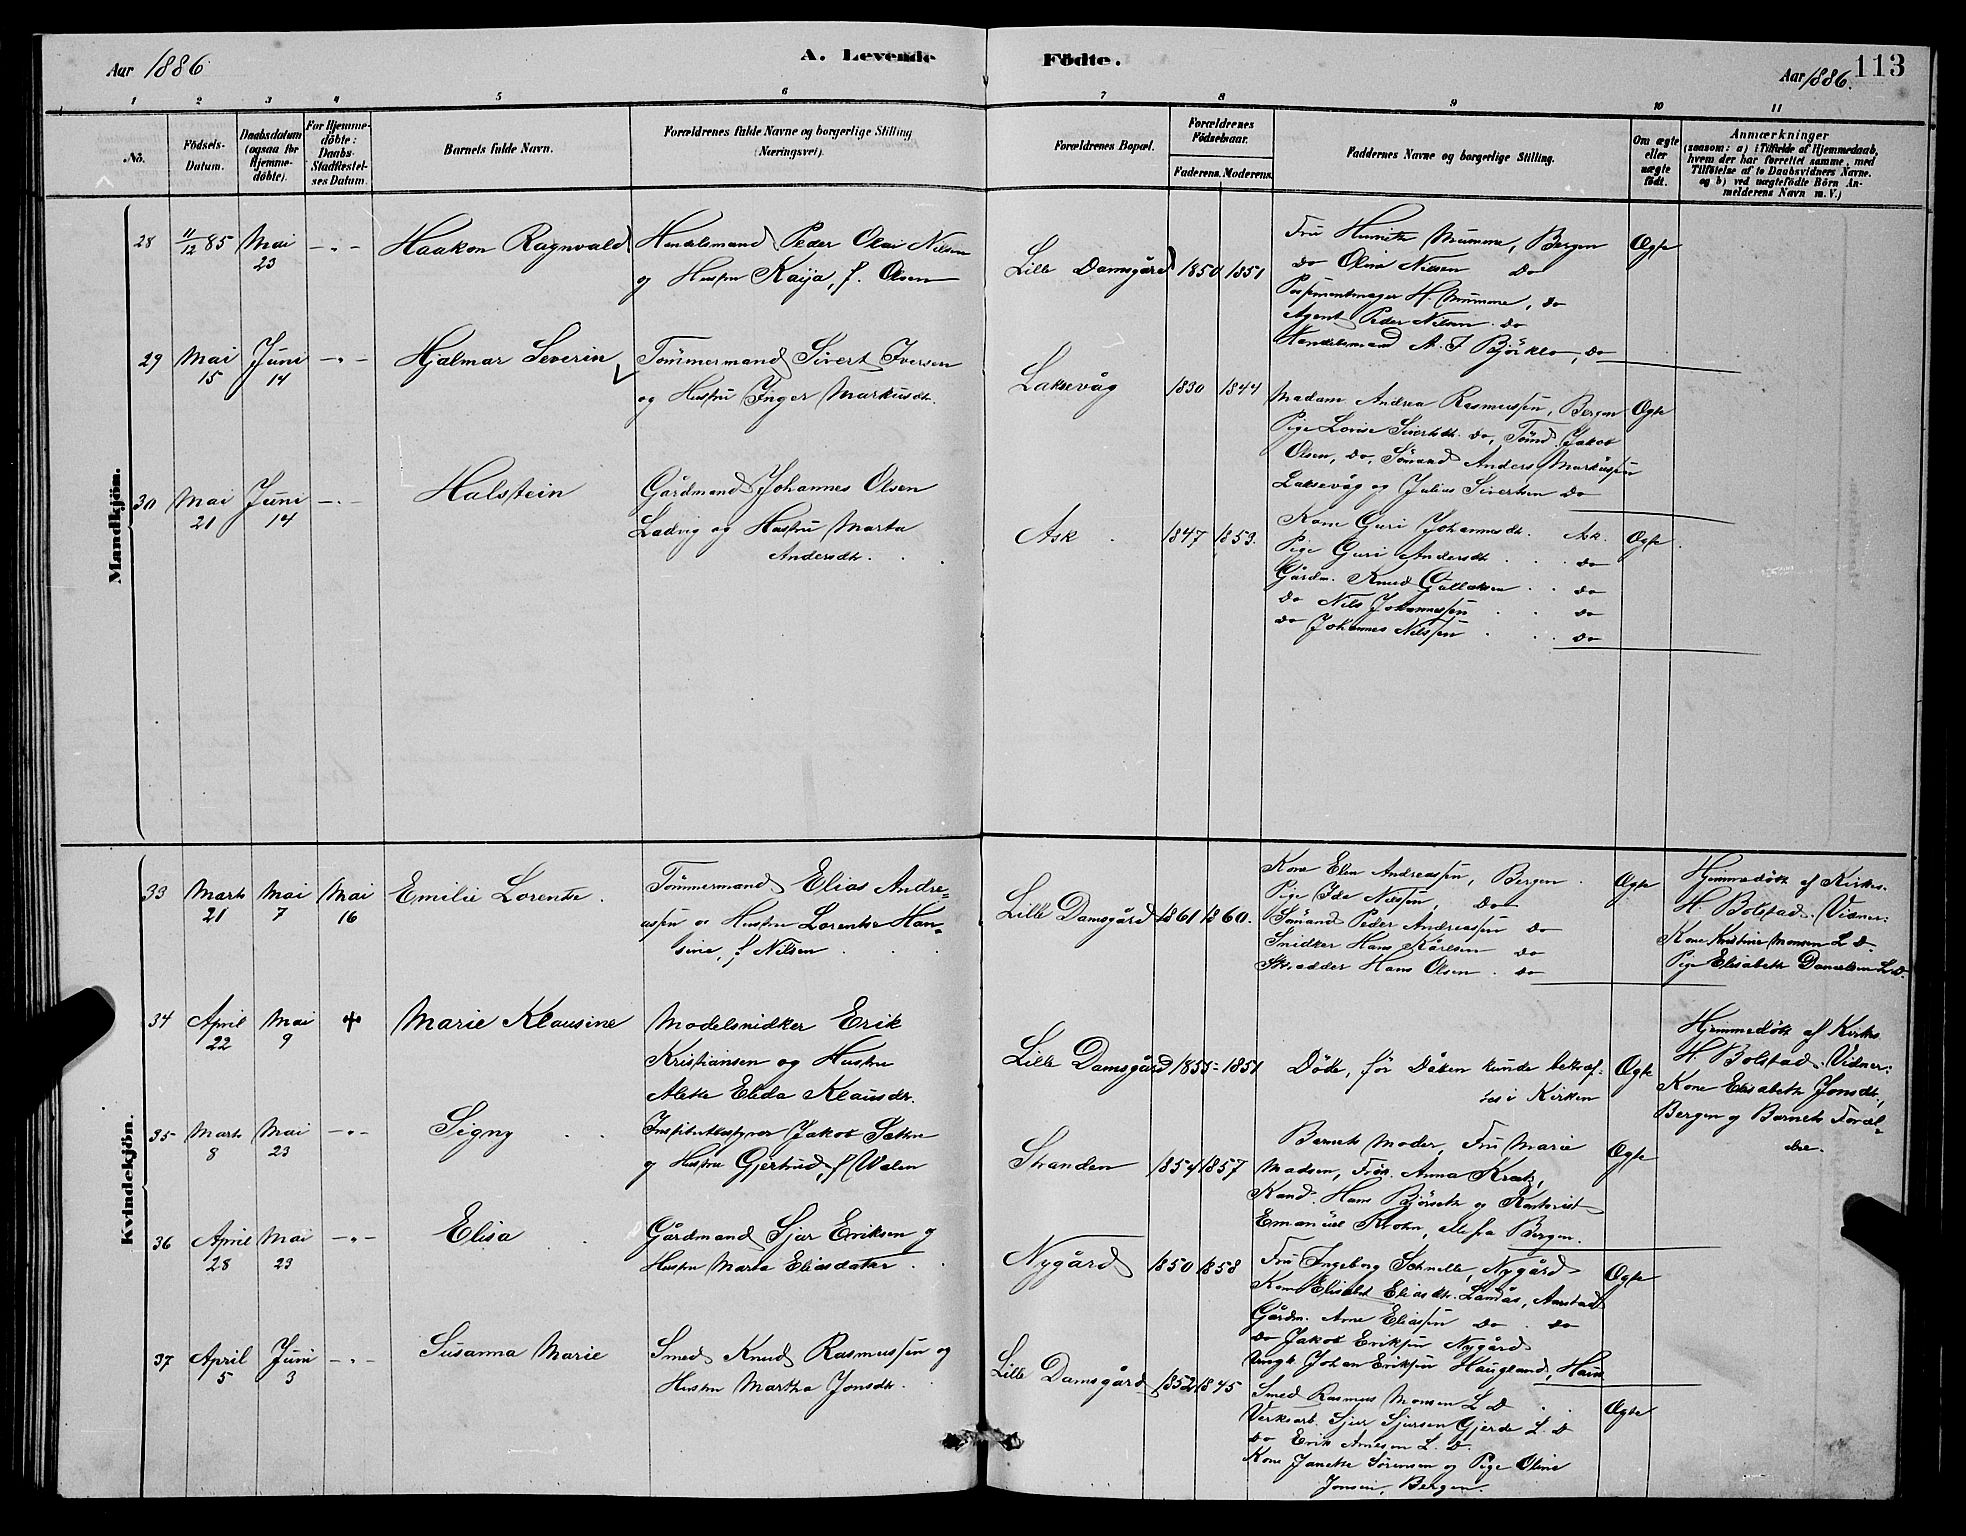 Aar 1886
A. Levende
Födte.
Aar 1886.
113
1 2 3 4 5 6 7 8 9 10 11
No.
Födsels-
Datum.
Daabsdatum
(ogsaa for
Hjemme-
döbte).
For Hjemme-
döbte:
Daabs-
Stadfæstel-
ses Datum.
Barnets fulde Navn.
Forældrenes fulde Navne og borgerlige Stilling
(Næringsvei).
Forældrenes Bopæl.
Forældrenes
Födselsaar.
Faderens. Moderens.
Faddernes Navne og borgerlige Stilling.
Om ægte
eller
uægte
födt.
Anmærkninger
(saasom: a) i Tilfælde af Hjemmedaab,
hvem der har forrettet samme, med
Tilföielse af to Daabsvidners Navne.
og b) ved uægtefödte Börn An-
melderens Navn m. V.)
Mandkjön.
28 11/12 85 Mai 23 - „ - Haakon Ragnvald
Handelsmand Peder Olai Nilsen
og Hustru Kaija, f. Olsen
Lille Damsgård 1850 1851
Fru Henritte Mumme, Bergen
do Olivia Nilsen do
Possementmager H. Mumme, do
Agent Peder Nilsen do
Handelsmand A. J Björklo, do
Ægte
29 Mai 15 Juni 14 - „ - Hjalmar Severin
Tömmermand Sivert Iversen
og Hustru Inger Markusdt.
Laksevåg 1830 1844
Madam Andrea Rasmussen, Bergen
Pige Lovise Sivertsdt. do, Tömd. Jakob
Olsen, do, Sömand Anders Markussen
Laksevåg og Julius Sivertsen do
Ægte
30 Mai 21 Juni 14 - „ - Halstein
Gårdmand Johannes Olsen
Ladvig og Hustru Marta
Andersdt.
Ask 1847 1853.
Kone Guri Johannesdt. Ask.
Pige Guri Andersdt. do
Gårdm. Knud Gullaksen do
do Nils Johannessen do
do Johannes Nilssen do
Ægte
Kvindekjön.
33 Marts 21 Mai 7 Mai 16 Emilie Lorentse.
Tömmermand Elias Andre-
assen og Hustru Lorentse Han-
sine, f. Nilsen
Lille Damsgård 1861 1860.
Kone Elen Andreassen, Bergen
Pige Ida Nilssen, do
Sömand Peder Andreassen do
Snidker Hans Karlsen do
Skrædder Hans Olsen do
Ægte
Hjemmedöbt af Kirkes.
H. Bolstad. Vidner:
Kone Kristine Monsen L D.
Pige Elisabeth Danielsen L D.
34 April 22 Mai 9 + Marie Klausine
Modelsnidker Erik
Kristiansen og Hustru
Alette Elida Klausdt.
Lille Damsgård 1855 - 1851
Döde, för Dåben kunde bekræf-
tes i Kirken
Ægte
Hjemmedöbt af Kirkes.
H. Bolstad. Vidner:
Kone Elisabeth Jonsdt.,
Bergen og Barnets Foræl-
dre.
35 Marts 8 Mai 23 - „ - Signy
Institutbestyrer Jakob Sethre
og Hustru Gjertrud, f Walen
Stranden 1854 1857
Barnets Moder, Fru Marie
Madsen, Frök. Anna
Kand. Hans og
Emanuel Krohn, alle fra Bergen.
Ægte
36 April 28 Mai 23 - „ - Elisa
Gårdmand Sjur Eriksen og
Hustru Marta Eliasdatter
Nygård 1850 1858
Fru Ingeborg Schnelle, Nygård
Kone Elisabet Eliasdt. Landås, Aarstad
Gårdm. Arne Eliassen do do
do Jakob Eriksen Nygård
Ungk. Johan Eriksen Haugland, Haus
Ægte
37 April 5 Juni 3 - „ - Susanna Marie
Smed Knud Rasmussen og
Hustru Martha Jonsdt.
Lille Damsgård 1852 1845
Smed Rasmus Monsen L D
Verksarb. Sjur Sjursen Gjerde L. D
do Erik Arnesen L. D.
Kone Janette Sörensen og Pige Oline
Jonsen, Bergen.
Ægte